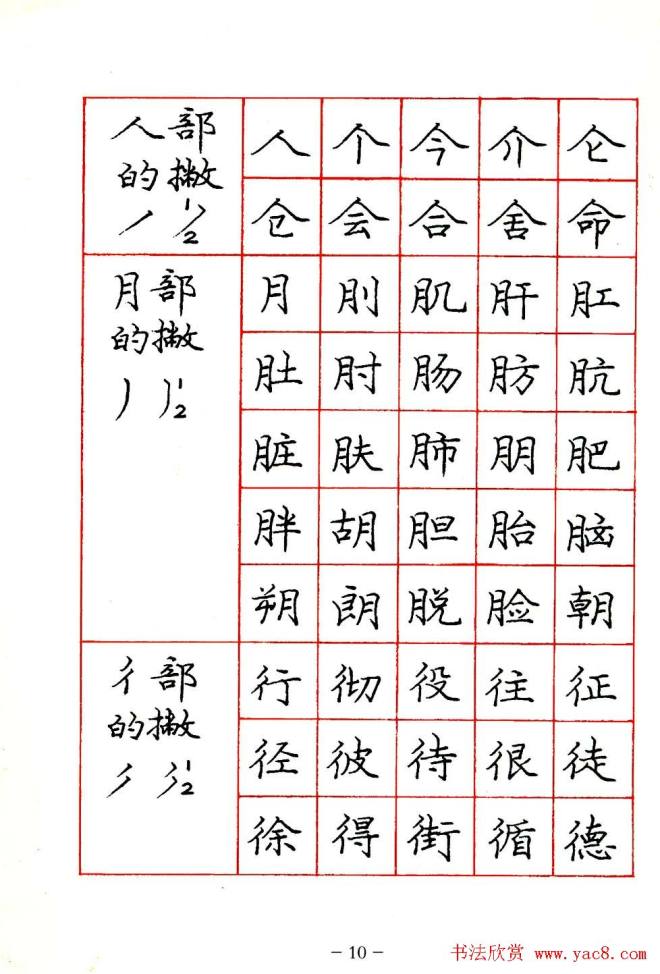 人部
的撇
丿 丿½
人 个 今 介 仑
仓 会 合 舍 命
月部
的撇
丿 丿½
月 刖 肌 肝 肛
肚 肘 肠 肪 肮
脏 肤 肺 朋 肥
胖 胡 胆 胎 脑
朔 朗 脱 脸 朝
彳部
的撇
½
行 彻 役 往 征
径 彼 待 很 徒
徐 得 街 循 德
- 10 -
书法欣赏 www.yac8.com